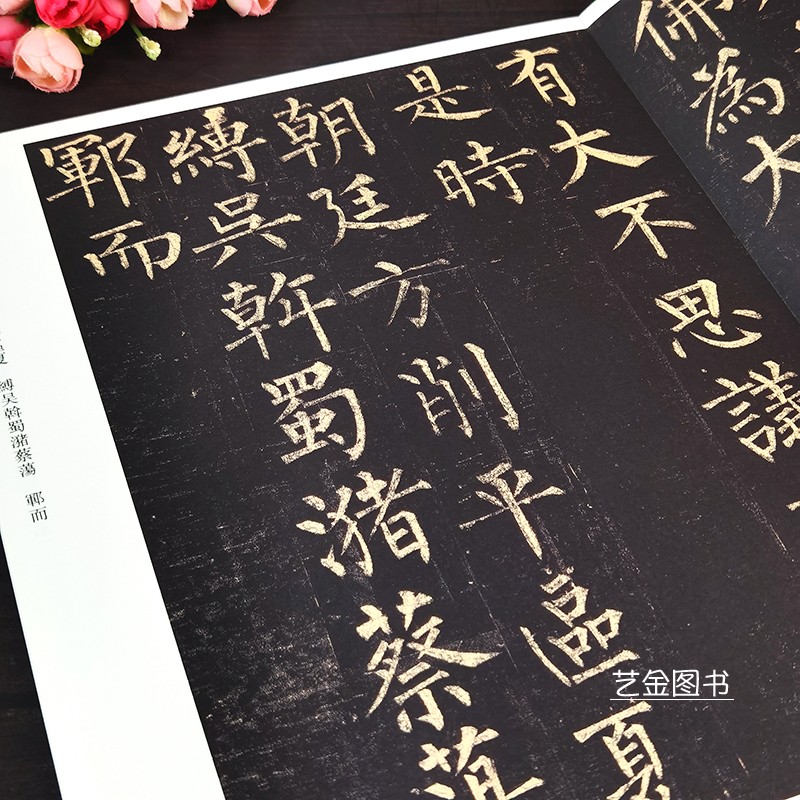 佛為大
有大不思議
是時
朝廷方削平區夏
縛吳斡蜀潴蔡蕩
鄆而
縛吴斡蜀潴蔡蕩 鄆而
艺金图书